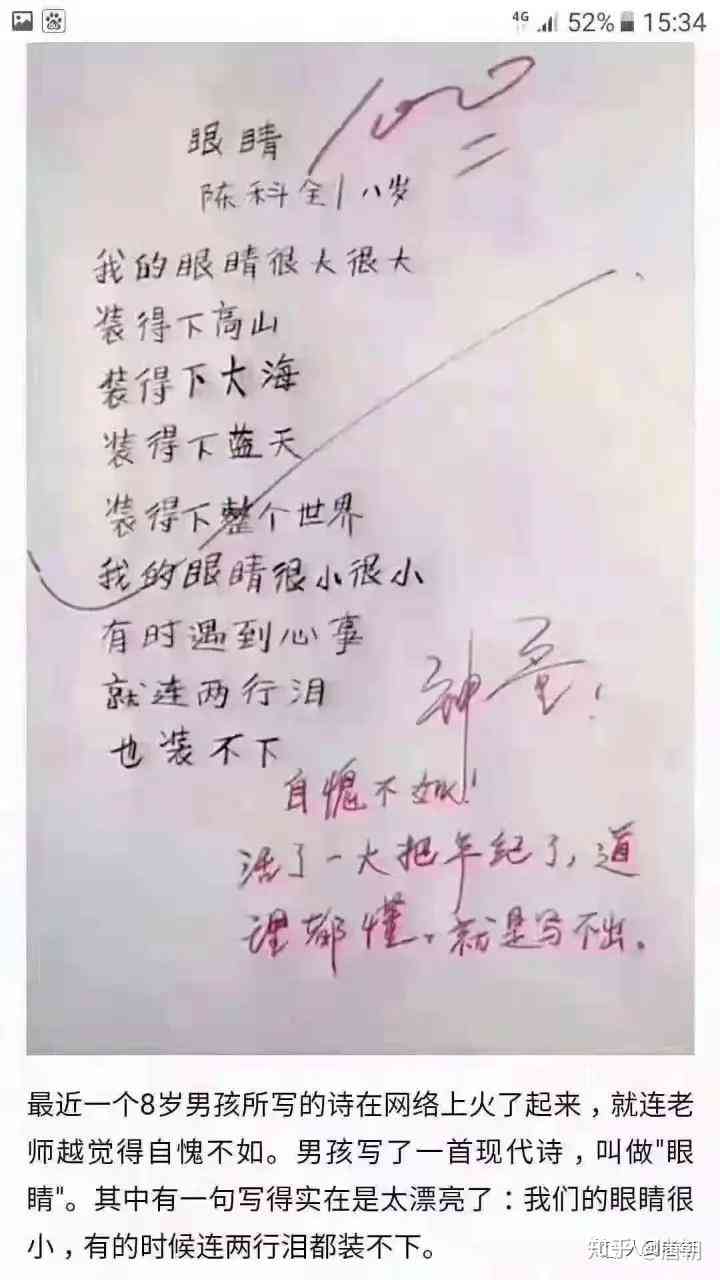 4G 52% 15:34
100
眼睛
陈科全 | 八岁
我的眼睛很大很大
装得下高山
装得下大海
装得下蓝天
装得下整个世界
我的眼睛很小很小
有时遇到心事
就连两行泪
也装不下
神童!
自愧不如!
活了一大把年纪了,道
理都懂。就是写不出。
最近一个8岁男孩所写的诗在网络上火了起来，就连老
师越觉得自愧不如。男孩写了一首现代诗，叫做"眼
睛"。其中有一句写得实在是太漂亮了：我们的眼睛很
小，有的时候连两行泪都装不下。
知乎